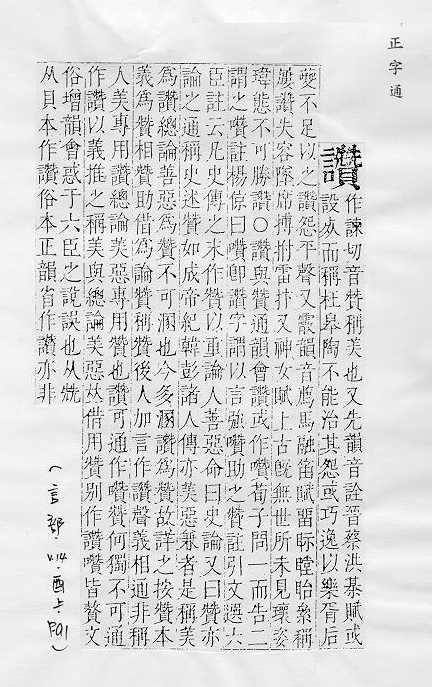 正字通
讚 作諫切音贊稱美也又先韻音詮晉蔡洪棊賦或
設疾而稱杜皋陶不能治其怨或巧逸以樂胥后
夔不足以之讚怨平聲又霰韻音薦馬融笛賦畱眎瞠眙絫稱
屢讚失容墜席搏拊雷抃又神女賦上古旣無世所未見瓌姿
瑋態不可勝讚○讚與贊通韻會讚或作囋荀子問一而告二
謂之囋註楊倞曰囋卽讚字謂以言強囋助之贊註引文選六
臣註云凡史傳之末作贊以重論人善惡命曰史論又曰贊亦
論之通稱史述贊如成帝紀韓彭諸人傳亦美惡兼者是稱美
爲讚總論善惡爲贊不可溷也今多溷讚爲贊故詳之按贊本
義爲贊相贊助借爲論贊稱贊後人加言作讚聲義相通非稱
人美專用讚總論美惡專用贊也讚可通作囋贊何獨不可通
作讚以義推之稱美與總論美惡𠀤借用贊别作讚囋皆贅文
俗增韻會惑于六臣之說誤也从兟
从貝本作讚俗本正韻省作讃亦非
(言部 V.14·酉上 P.91)